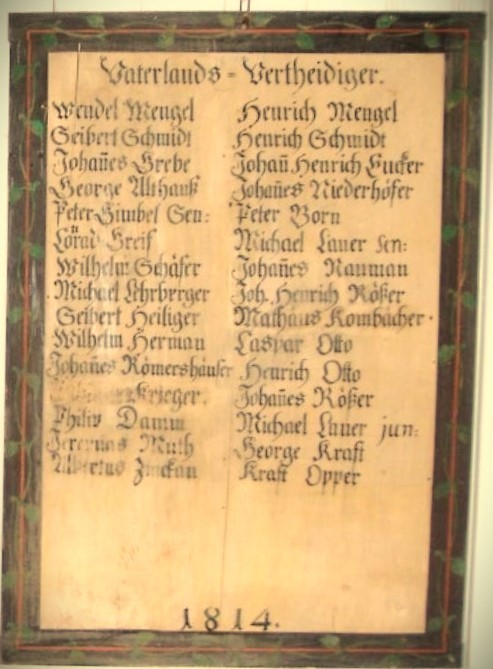 Vaterlands = Vertheidiger.
Wendel Mengel
Seibert Schmidt
Johañes Grebe
George Althauß
Peter Gimbel Sen:
Cörad Greif
Wilhelm Schäfer
Michael Lehrbrrger
Seibert Heiliger
Wilhelm Herman
Johañes Römershäuser
Krieger.
Philip Damm
Jeremias Muth
Albertus Zinckau
Henrich Mengel
Henrich Schmidt
Johañ Henrich Eucker
Johañes Niederhöfer
Peter Born
Michael Lauer sen:
Johañes Nauman
Joh. Henrich Rößer
Mathäus Kombächer.
Caspar Otto
Henrich Otto
Johañes Rößer
Michael Lauer jun:
George Kraft
Kraft Opper
1814.